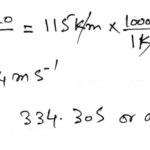 0 = 115 k/m × 1000
1 k
4 m s⁻¹
334.30s or